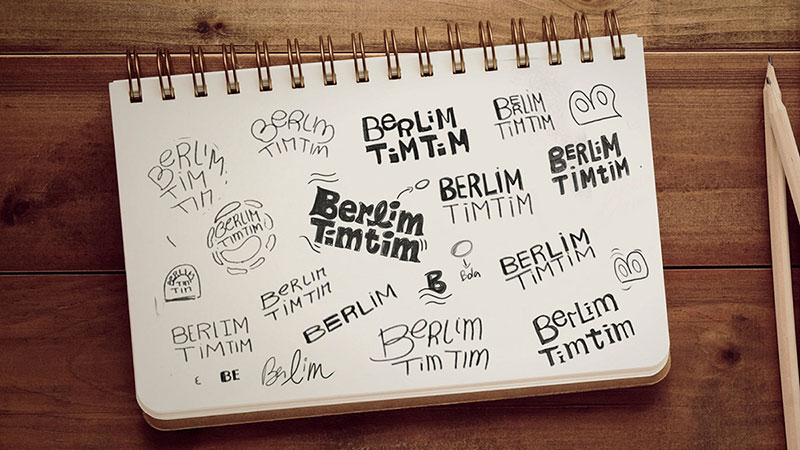 BERLIM
TIM
TIM
BERLIM
TIMTIM
BERLIM
TIMTIM
BERLIM
TIMTIM
BERLIM
TIMTIM
Berlim
Timtim
BERLIM
TIMTIM
BERLIM
TIMTIM
BERLIM
TIM
TIM
BERLIM
TIMTIM
B
Bola
BERLIM
TIMTIM
BERLIM
TIMTIM
BERLIM
BERLIM
TIMTIM
BERLIM
TIMTIM
BE
Berlim